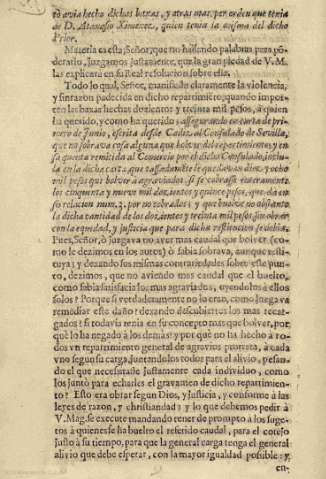 todavia hecho dichas baxas, y otras mas, por orden que tenia
de D. Atanasio Ximenez, quien tenia la misma del dicho
Prior.
Materia es esta, Señor, que no hallando palabras para pon-
derarlo, juzgamos justamente, que la gran piedad de V.M.
las explicarà en su Real resolucion sobre ella.
Todo lo qual, Señor, manifiesta claramente la violencia,
y sinrazon padecida en dicho repartimento; quando impor-
ten las baxas hechas docientos y treinta mil pesos, à quien
ha querido, y como ha querido; assegurando en carta de pri-
mero de Junio, escrita desde Cadiz al Consulado de Sevilla,
que no sobrava cosa alguna que bolver del repartimiento, y en
su quenta remitida al Comercio por el dicho Consulado, inclu-
da en la dicha carta, que tassadamente le quedavan diez y ocho
mil pesos que bolver à agraviados, si se cobrasse enteramente
los cinquenta y nueve mil docientos y quince pesos, que dà en
su relacion num. 3. por no cobrados, y que buelve no obstante
la dicha cantidad de los docientos y treinta mil pesos, sin obrar
con la equidad, y justicia que para dicha restitucion se debia.
Pues, Señor, ò juzgava no aver mas caudal que bolver (co-
mo le dezimos en los autos) ò sabia sobrava, aunque resti-
tuya; y dexando sus mismas contrariedades sobre este pun-
to, dezimos, que no aviendo mas caudal que el buelto,
como sabia satisfacia los mas agraviados, oyendolos à ellos
solos? Porque si verdaderamente no lo eran, como juzgava
remediar este daño? dexando descubiertos los mas recar-
gados? si todavia tenia en su concepto mas que bolver, por-
què lo ha negado à los demàs? y por què no ha hecho à to-
dos vn repartimiento general de agravios prorata, à cada
vno segun su carga, juntandolos todos para el alivio, y esan-
do el que necesitasse justamente cada individuo, como
los juntò para echarles el gravamen de dicho repartimien-
to? Esto era obrar segun Dios, y Justicia, y conforme à las
leyes de razon, y christiandad; y lo que debemos pedir à
V. Mag. se execute mandando tener de prompto à los suge-
tos à quienes se ha buelto el referido caudal, para el cotejo
justo à su tiempo, para que la general carga tenga el general
alivio que debe esperar, con la mayor igualdad possible: y,
en-